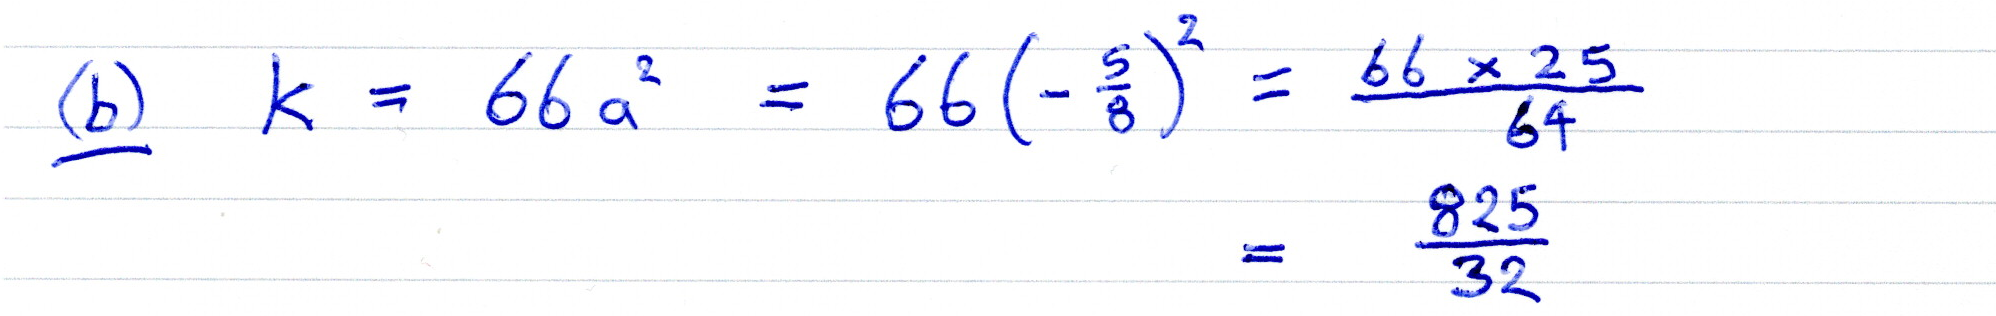 (b) k = 66a² = 66(-5/8)² = 66 × 25/64
= 825/32